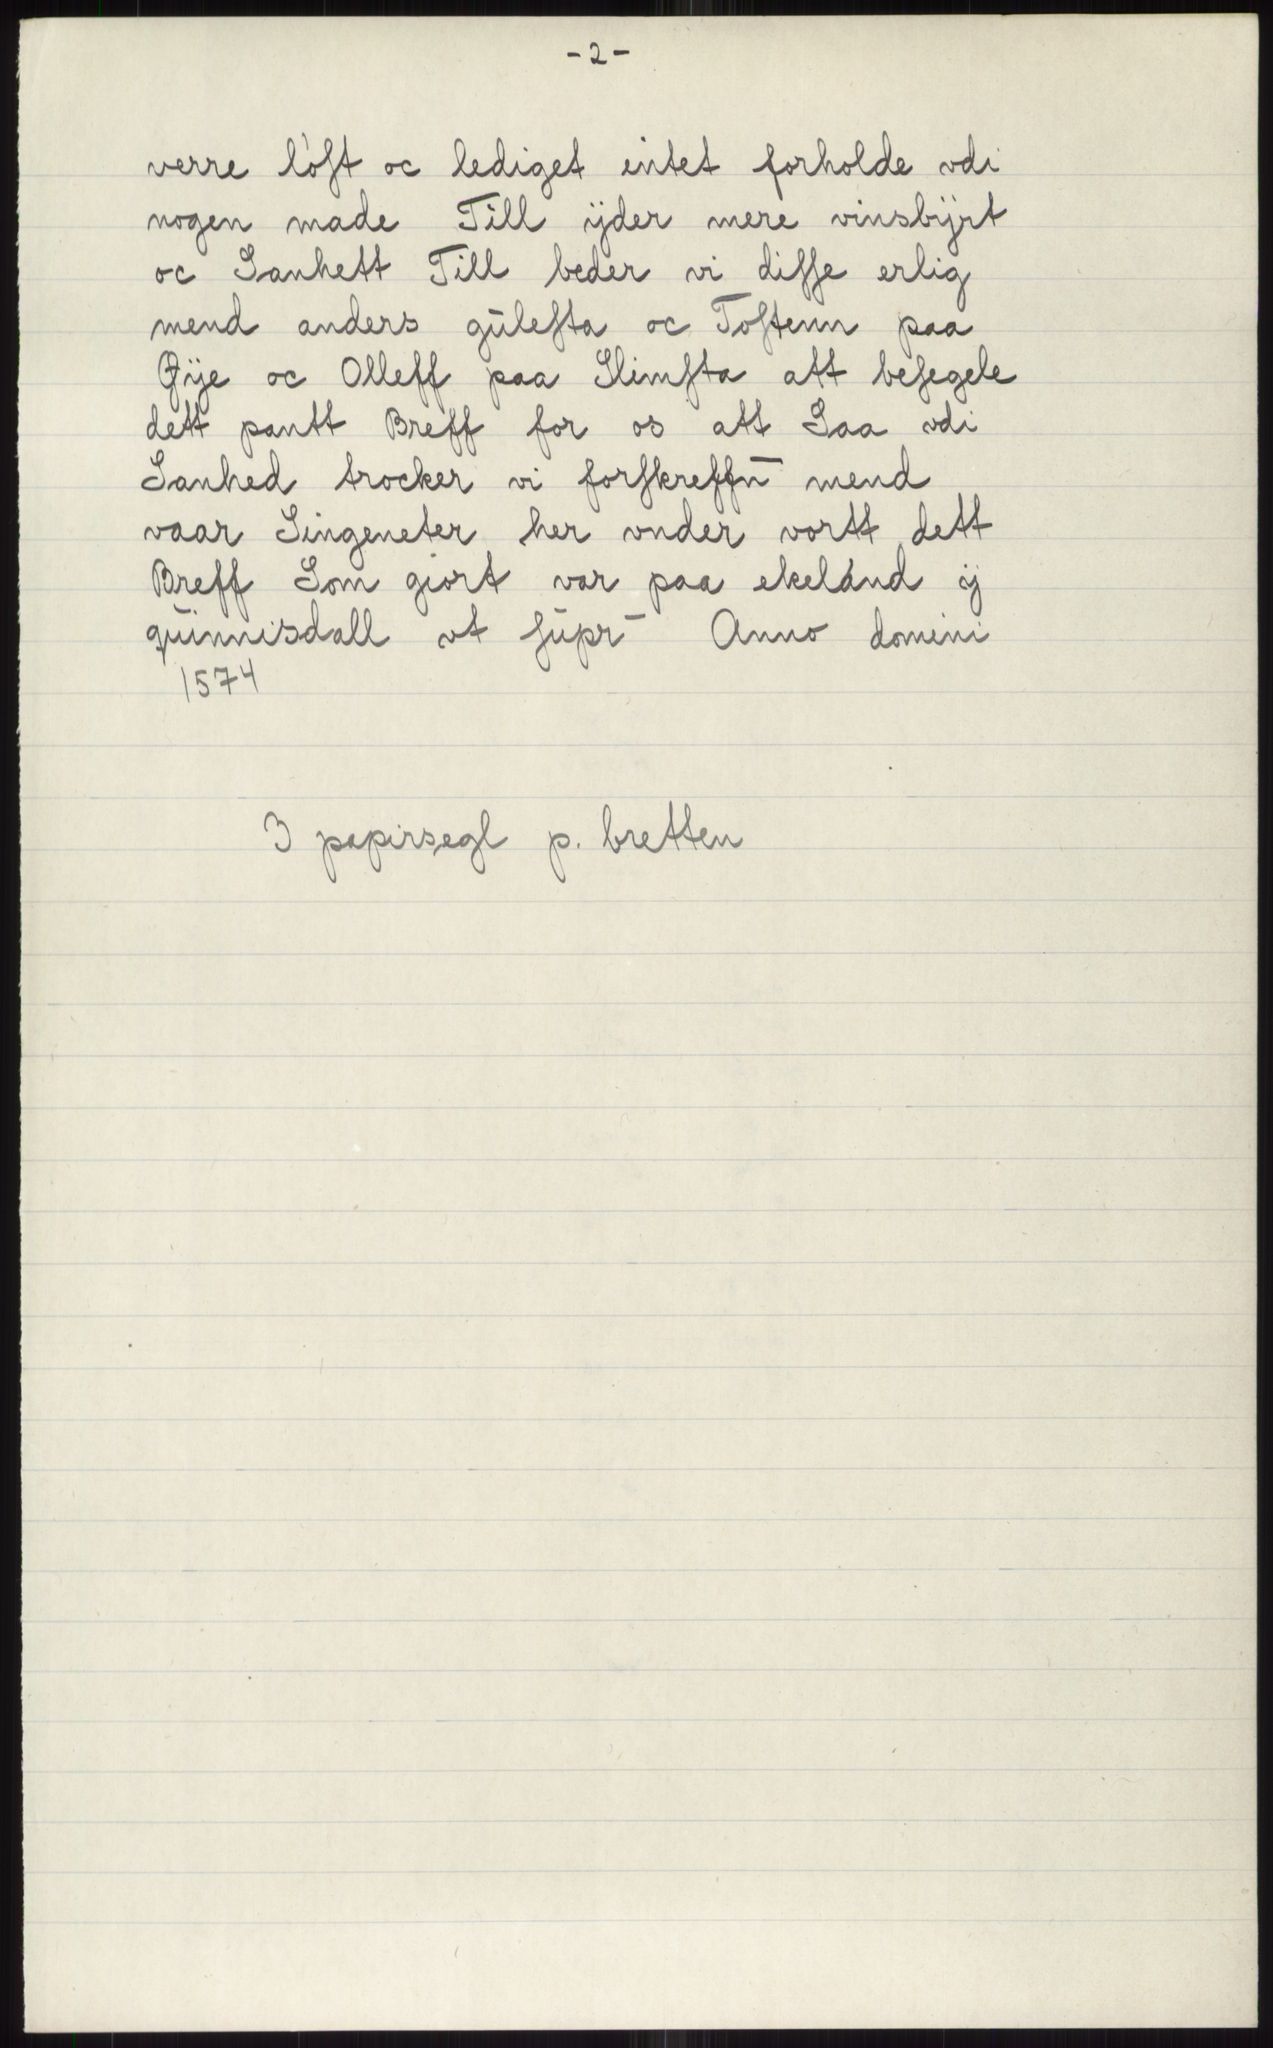 - 2 -
verre löſt oc lediget intet forholde vdi
nogen made Till ÿder mere vinsbÿrt
oc Sanhett Till beder vi diſſe erlig
mend anders gūleſta oc Toſtenn paa
Øÿe oc Olleff paa Slimſta att beſegele
dett pantt Breff for os att Saa vdi
Sanhed trocker vi forſkreffn̄ mend
vaar Singeneter her vnder vortt dett
Breff Som giort var paa ekeland ÿ
quinnisdall vt ſupr̄ Anno domini
1574
3 papirsegl p. bretten